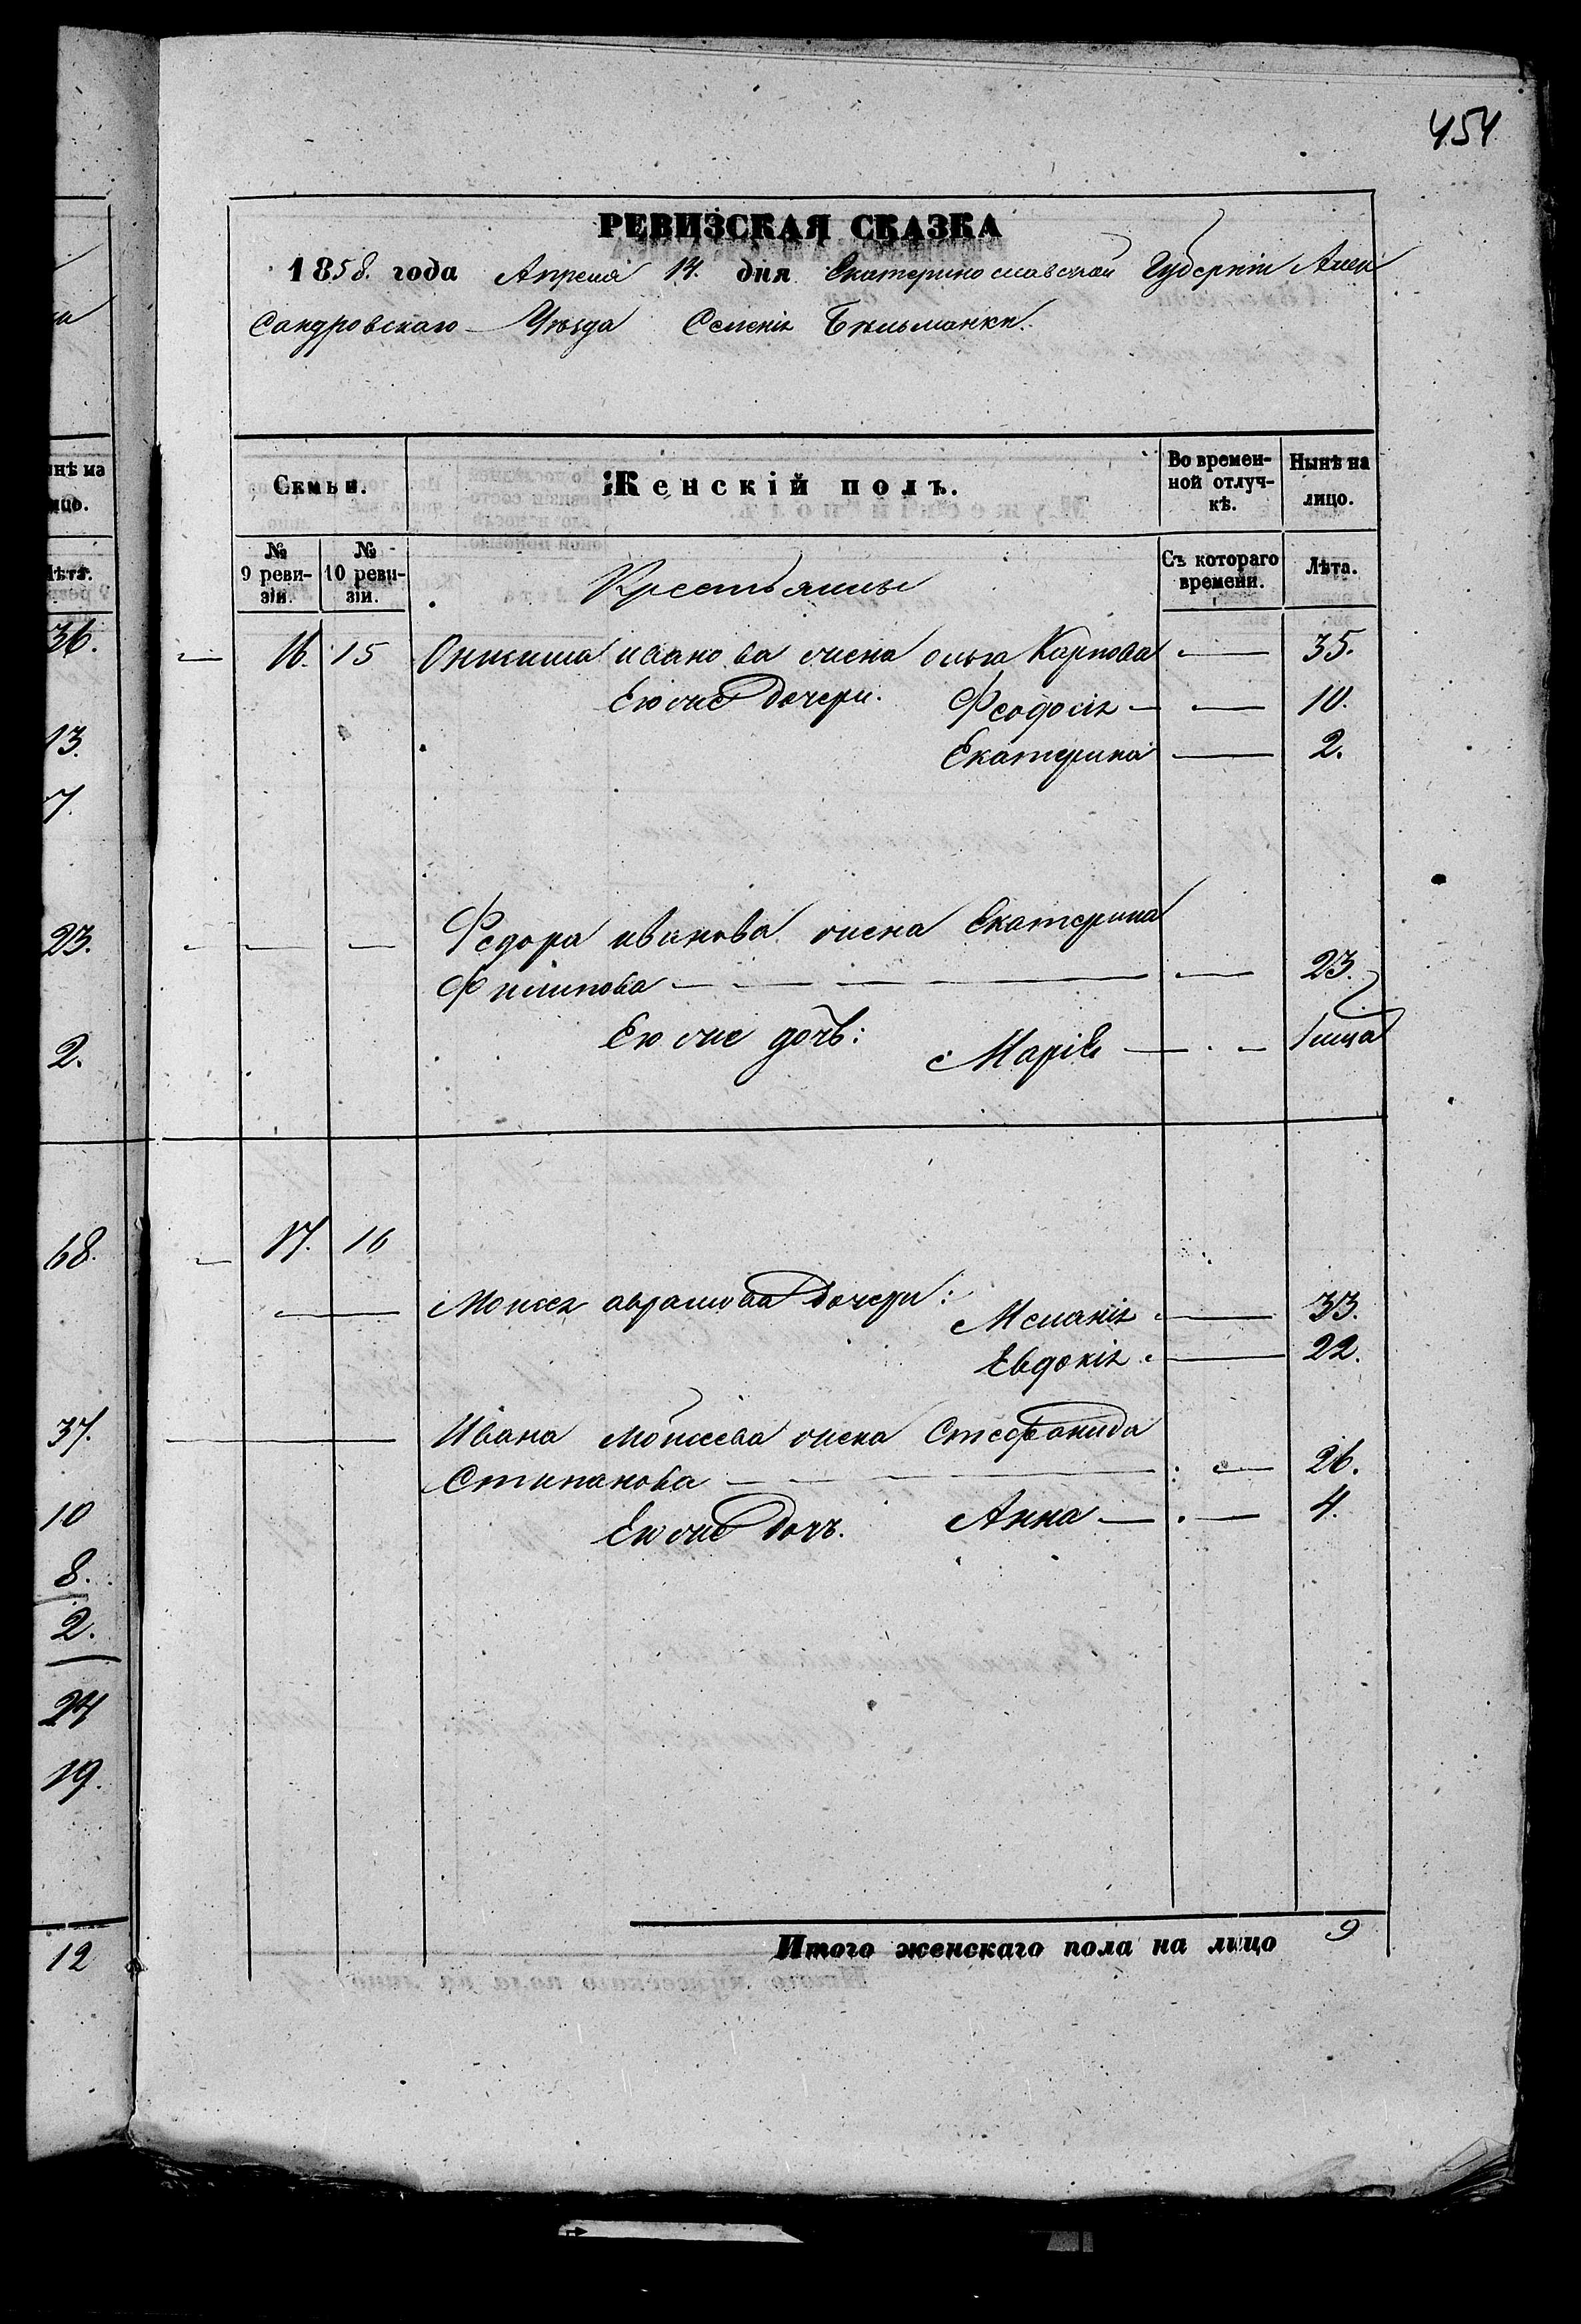 454
РЕВИЗСКАЯ СКАЗКА
1858. года Апреля 14. дня Екатеринославской Губерніи Алек
сандровскаго Уѣзда Селенія Бѣльманки.
Семьи.
Женскій полъ.
Во времен-
ной отлуч-
кѣ.
Нынѣ на
лицо.
№
9 реви-
зіи.
№
10 реви-
зіи.
Съ котораго
времени.
Лѣта.
Крестьянины
16. 15 Иванова жена Ольга Карпова — 35.
Ею же дочери. Феодосія — 10.
Екатерина — 2.
Федора Иванова жена Екатерина
Филипова — 23.
Ею же дочь: Марія —
17. 16
Моисея Аврамова дочери: Меланія — 33.
Евдокія — 22.
Ивана Моисеева жена Стефанида
Стипанова — 26.
Ею же дочь. Анна — 4.
Итого женскаго пола на лицо 9
36.
13.
7.
23.
2.
68.
37.
10
8.
2.
24
19.
12